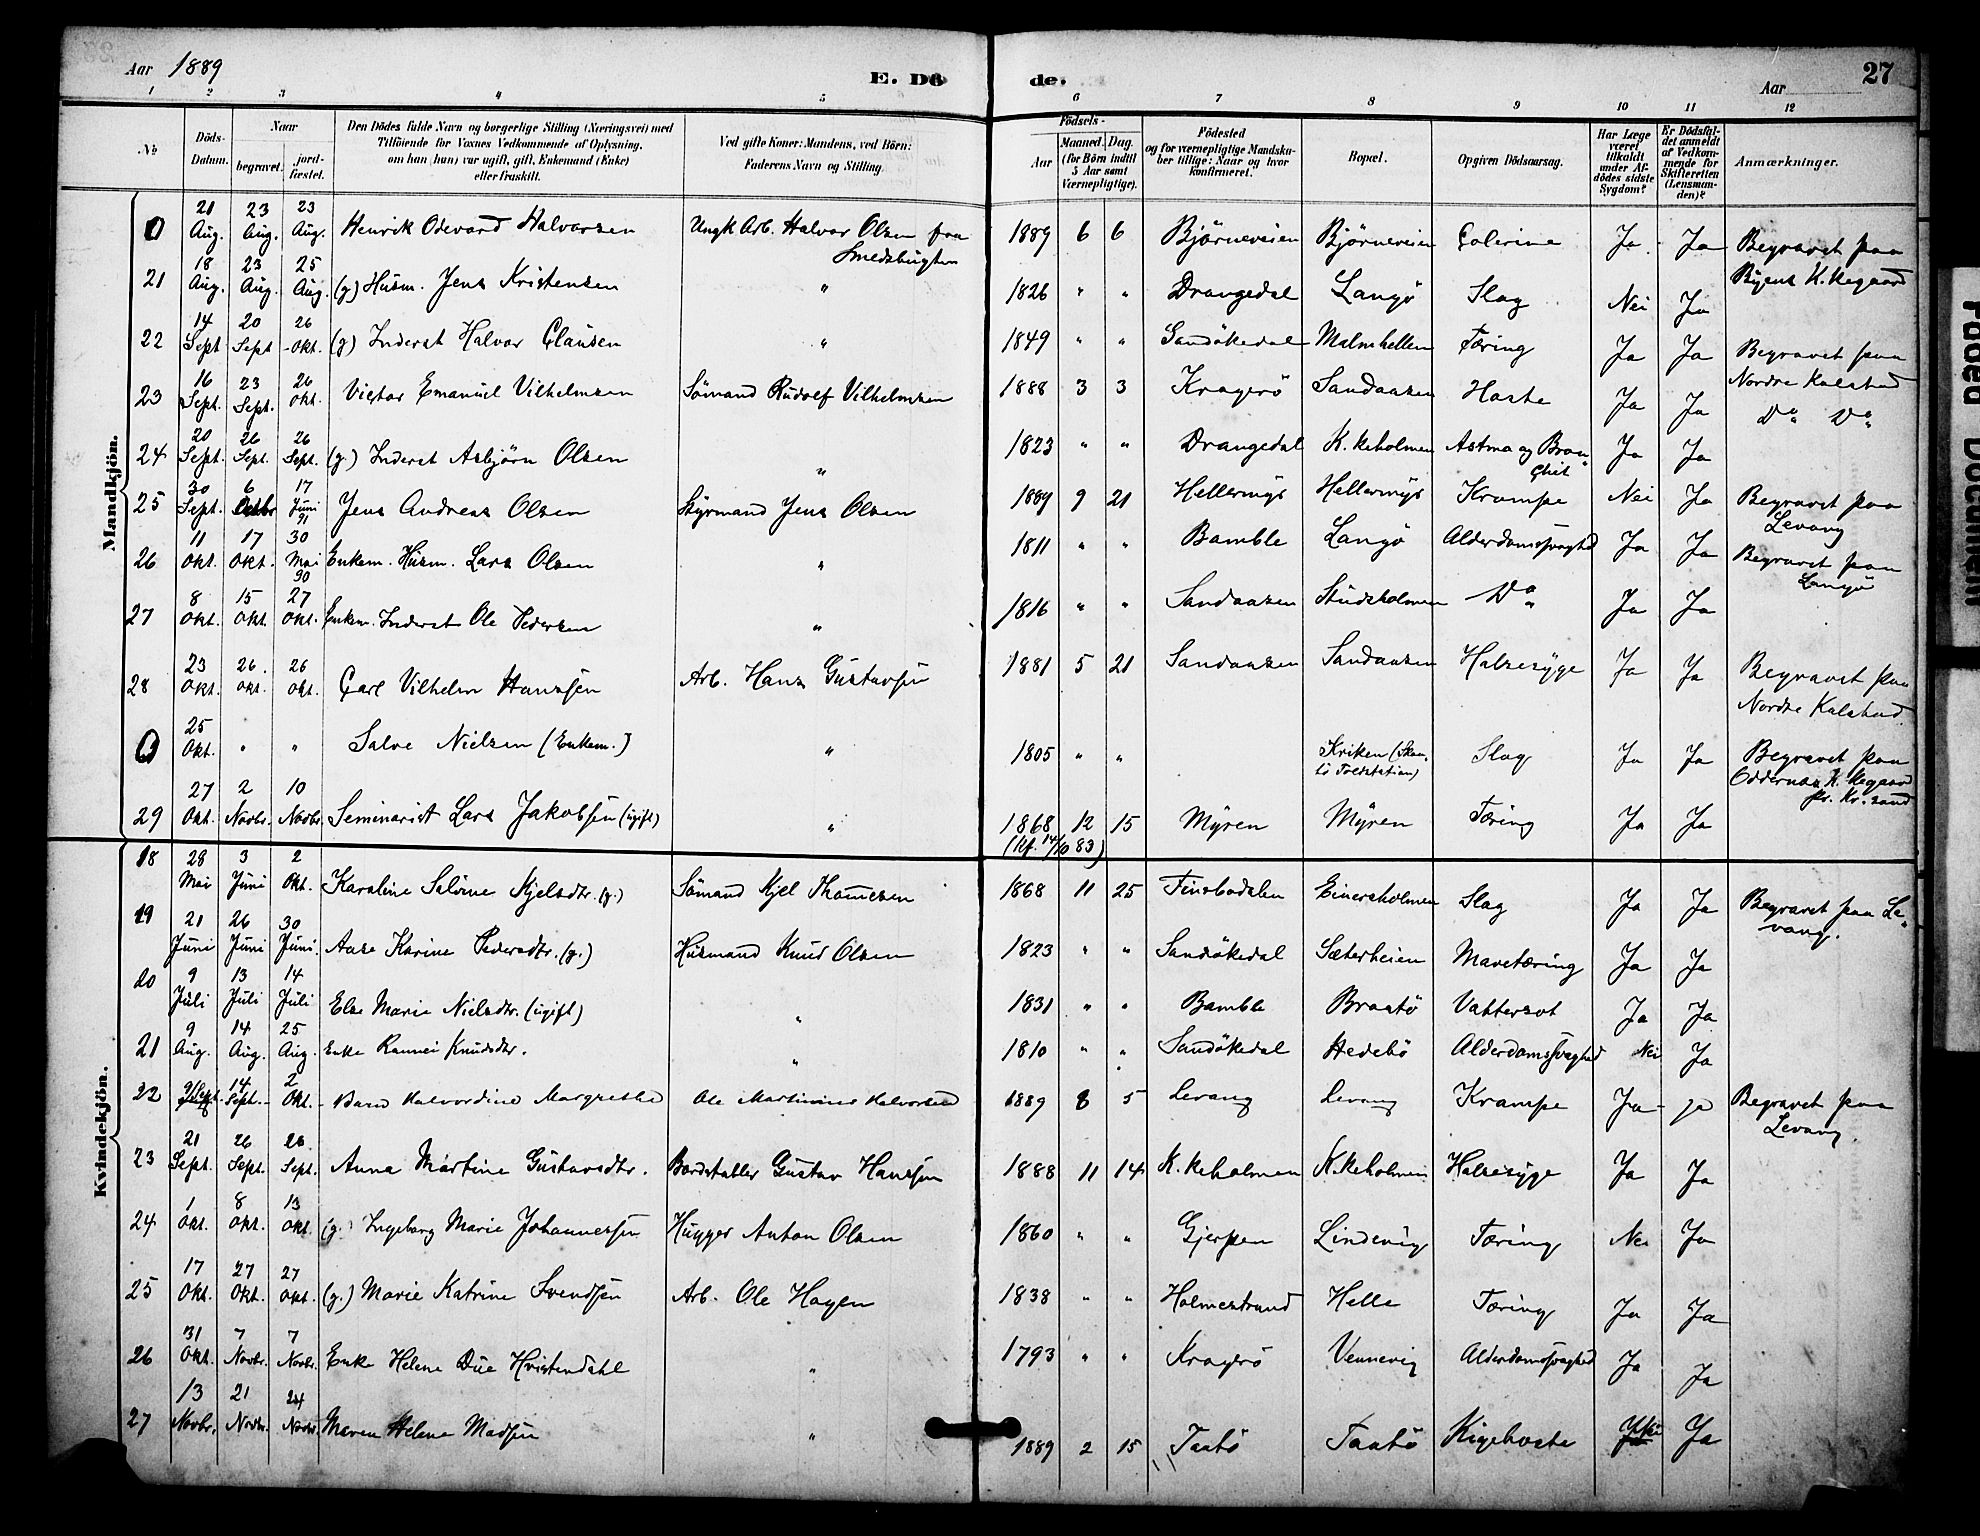 Aar 1889
E. Dö
de.
Aar
27
1 2 3 4 5 6 7 8 9 10 11 12
No
Döds-Datum.
Naar
begravet.
jord-fæstet.
Den Dödes fulde Navn og borgerlige Stilling (Næringsvei) med
Tilföiende for Voxnes Vedkommende af Oplysning,
om han (hun) var ugift, gift, Enkemand (Enke)
eller fraskilt.
Ved gifte Koner: Mandens, ved Börn:
Faderens Navn og Stilling.
Födsels-
Aar
Maaned. Dag.
(for Börn indtil
5 Aar samt
Værnepligtige).
Födested
og for værnepligtige Mandsku-
ber tillige: Naar og hvor
konfirmeret.
Bopæl.
Opgiven Dödsaarsag.
Har Læge
været
tilkaldt
under Af-
dödes sidste
Sygdom?
Er Dödsfal-
det anmeldt
af Vedkom-
mende for
Skifteretten
(Lensman-
den)?
Anmærkninger.
Mandkjön.
0 21 Aug. 23 Aug. 23 Aug. Henrik Odevard Halvorsen Ungk Arb. Halvor Olsen fra Smedsbugten 1889 6 6 Björneveien Björneveien Colerine Ja Ja Begravet paa Byens K.kegaard
21 18 Aug. 23 Aug. 25 Aug. (g) Husm. Jens Kristensen " 1826 " " Drangedal Langö Slag Nei Ja
22 14 Sept 20 Sept 26 Okt. (g) Inderst Halvor Clausen " 1849 " " Sandökedal Malmhellen Tæring Ja Ja Begravet paa Nordre Kalstad
23 16 Sept. 23 Sept. 26 Okt. Victor Emanuel Vilhelmsen Sömand Rudolf Vilhelmsen 1888 3 3 Kragerö Sandaasen Hoste Ja Ja Do Do
24 20 Sept. 26 Sept. 26 Sept. (g.) Inderst Asbjörn Olsen " 1823 " " Drangedal K.keholmen Astma og Bronchit Ja Ja
25 30 Sept. 6 Octbr 17 Juni 91 Jens Andreas Olsen Styrmand Jens Olsen 1889 9 21 Hellermyr Hellermyr Krampe Nei Ja Begravet paa Levang
26 11 Okt. 17 Okt. 30 Mai 90 Enkem. Husm. Lars Olsen " 1811 " " Bamble Langö Alderdomssvaghed Ja Ja Begravet paa Langö
27 8 Okt. 15 Okt. 27 Okt. Enkem. Inderst Ole Pedersen " 1816 " " Sandaasen Studsholmen Do Ja Ja
28 23 Okt. 26 Okt. 26 Okt. Carl Vilhelm Hanssen Arb. Hans Gustavsen 1881 5 21 Sandaasen Sandaasen Halsesyge Ja Ja Begravet paa Nordre Kalstad.
0 25 Okt. " " Salve Nielsen (Enkem.) " 1805 " " Kriken (Skaa- tö Toldstation) Slag Ja Ja Begravet paa Oddernæs K.kegaard pr. Kr.sand
29 27 Okt. 2 Novbr. 10 Novbr. Seminarist Lars Jakobsen (ugift) " 1868 12 15 (Kf. 14/10 83) Myren Myren Tæring Ja Ja
Kvindekjön.
18 28 Mai 3 Juni 2 Okt. Karoline Salöme Kjelsdtr. (g.) Sömand Kjel Thommesen 1868 11 25 Finsbodalen Einersholmen Slag Ja Ja Begravet paa Levang.
19 21 Juni 26 Juni 30 Juni. Aase Karine Pedersdtr. (g.) Husmand Knud Olsen 1823 " " Sandökedal Sæterheien Mavetæring Ja Ja
20 9 Juli 13 Juli 14 Juli Else Marie Nielsdtr. (ugift) " 1831 " " Bamble Braatö Vattersot Ja Ja
21 9 Aug. 14 Aug. 25 Aug. Enke Rannei Knudsdtr. " 1810 " " Sandökedal Hedebö Alderdomssvaghed Nei Ja
22 9/Sept. 14 Sept. 2 Okt. Barn Halvordine Margrethe Ole Martinius Halvorsen 1889 8 5 Levang Levang Krampe Ja ja Begravet paa Levang.
23 21 Sept. 26 Sept. 26 Sept. Anna Martine Gustavsdtr. Bordstabler Gustav Hanssen 1888 11 14 K.keholmen K.keholmen Halsesyge Ja Ja
24 1 Okt. 8 Okt. 13 Okt. (g.) Ingeborg Marie Johannessen Hugger Anton Olsen 1860 " " Gjerpen Lindevig Tæring Nei Ja
25 17 Okt. 27 Okt. 27 Okt. (g.) Marie Katrine Svendsen Arb. Ole Hagen 1838 " " Holmestrand Helle Tæring Ja Ja
26 31 Okt. 7 Novbr. 7 Novbr. Enke Helene Due Hvistendahl " 1793 " " Kragerö Vennevig Alderdomssvaghed Ja Ja
27 13 Novbr. 21 Novbr. 24 Novbr. Maren Helene Madsen " 1889 2 15 Taatö Taatö Kigehoste Ja
Faded Document